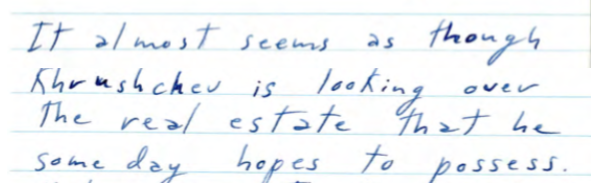 It almost seems as though
Khrushchev is looking over
the real estate that he
some day hopes to possess.